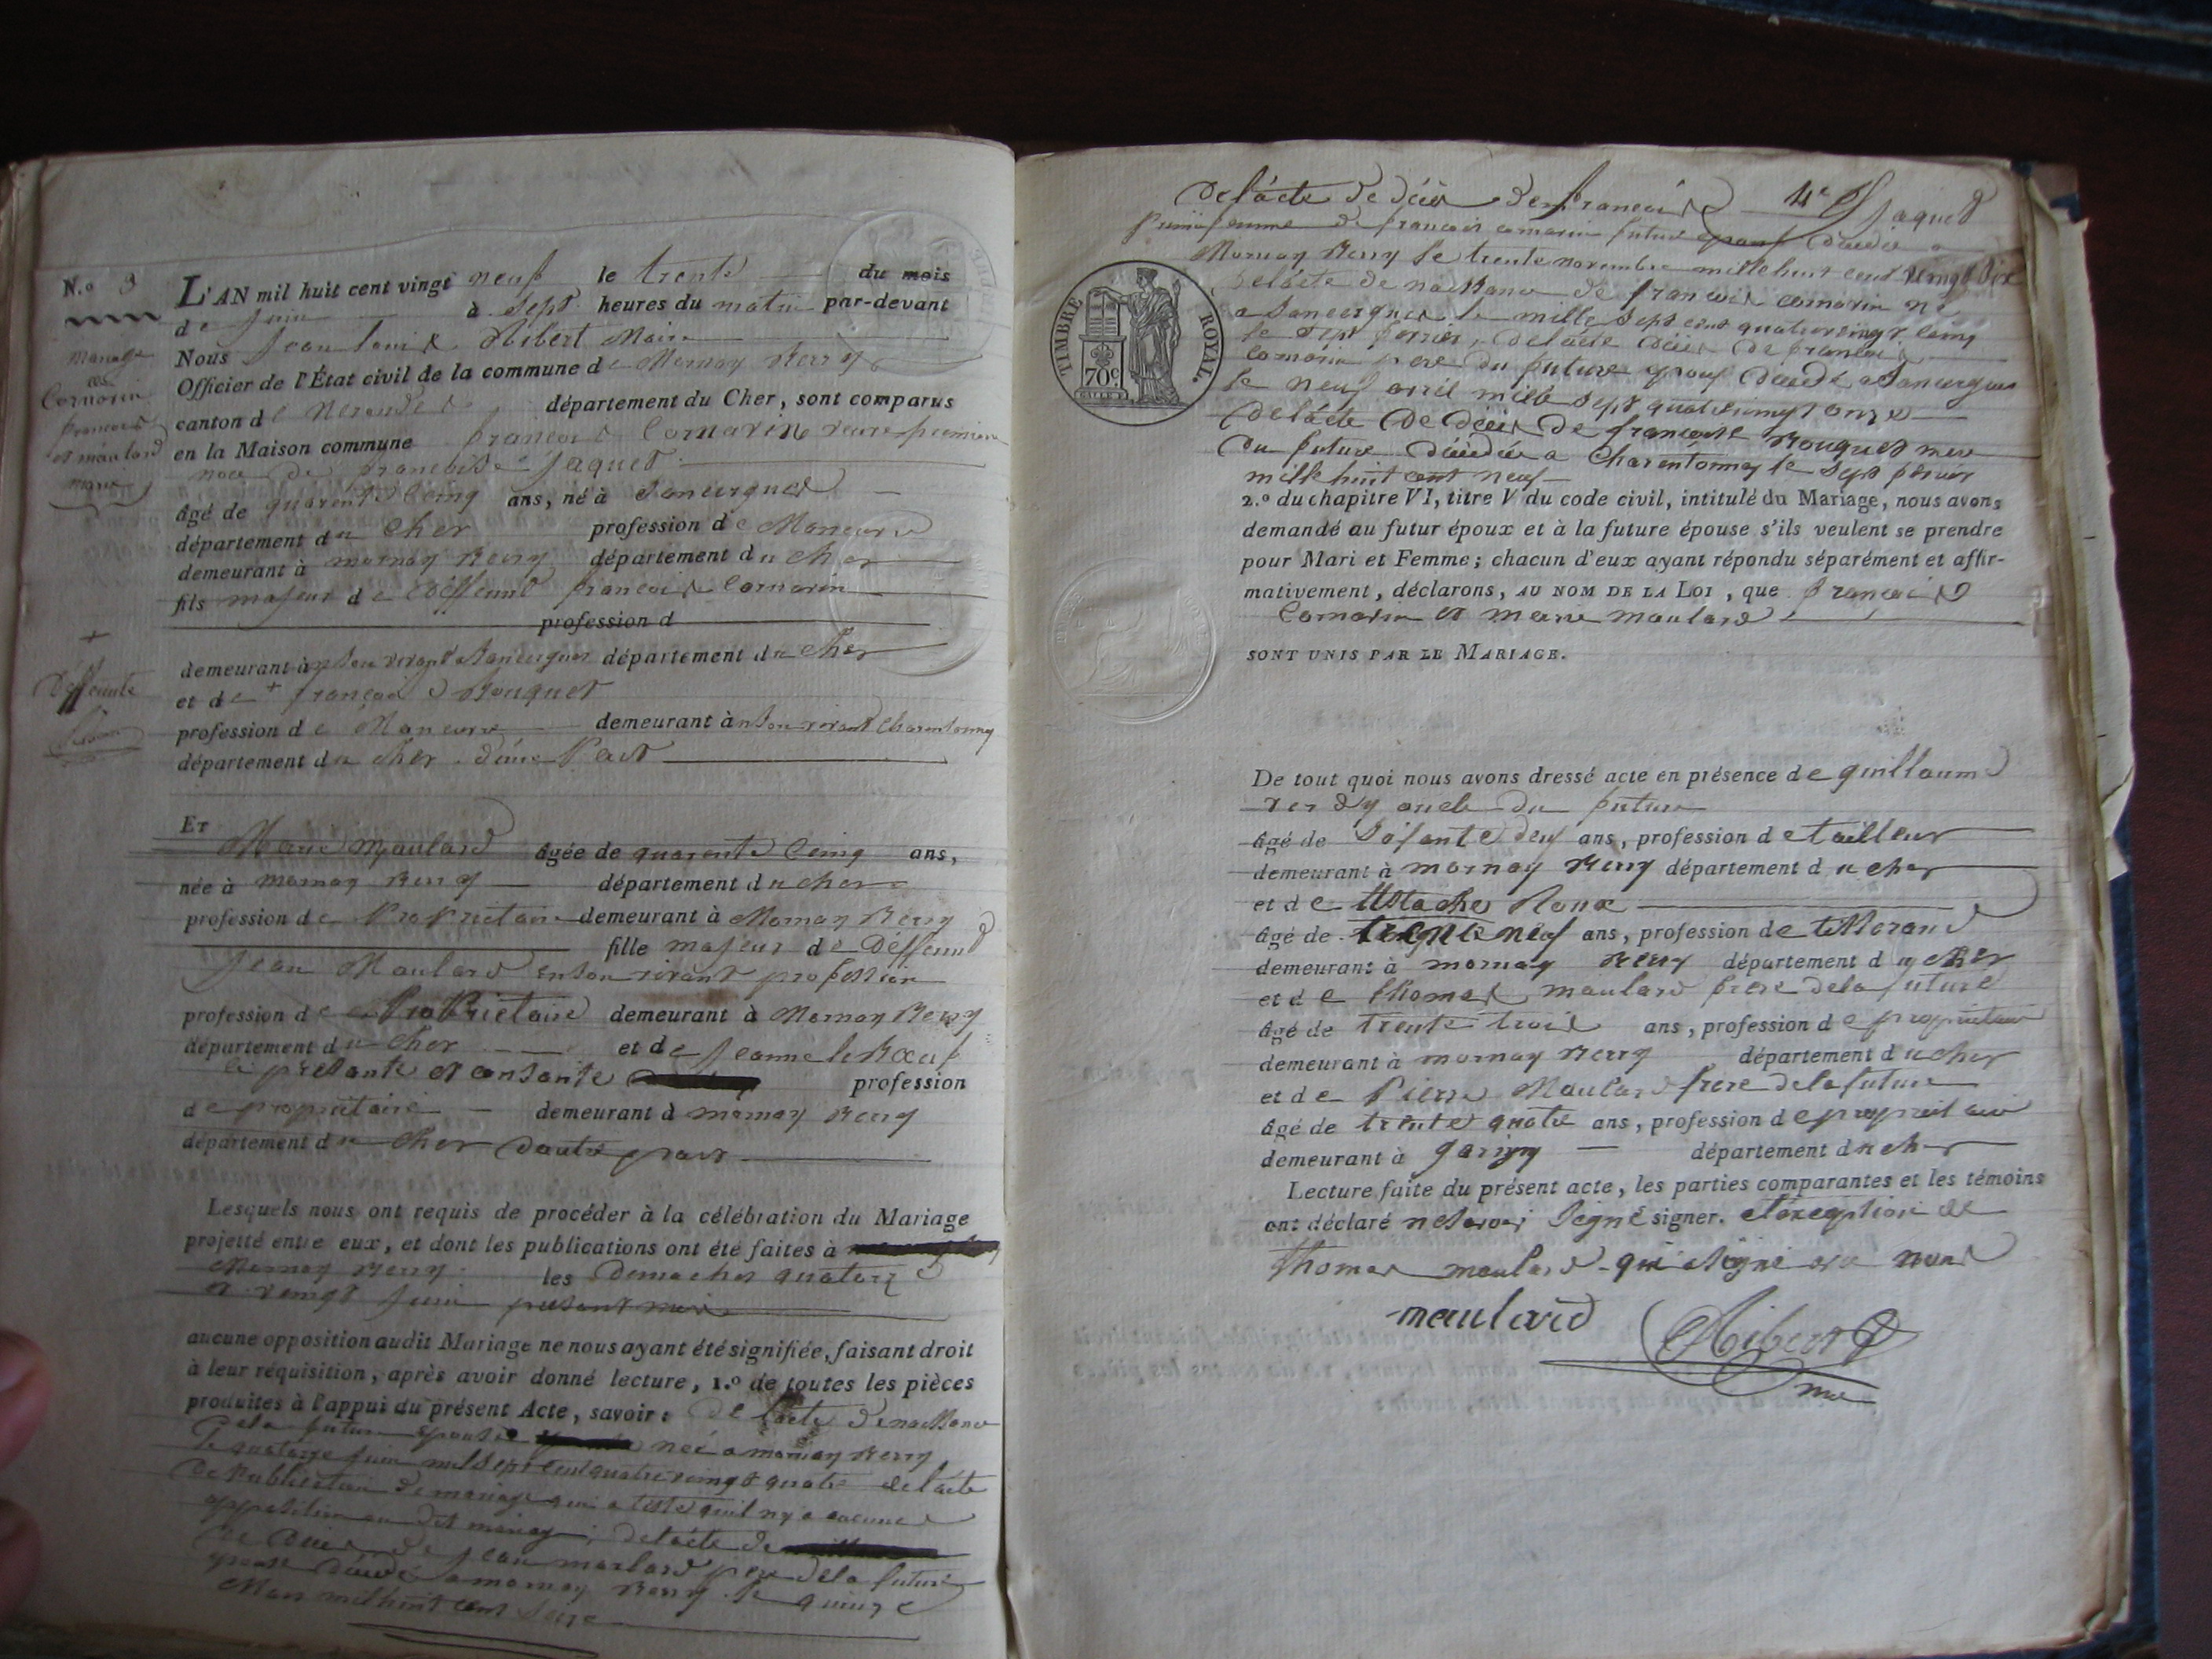 N.o 9
mariage
Comarin
françois
et maulard
marie
L'AN mil huit cent vingt neuf le trente du mois
de Juin à sept heures du matin par-devant
Nous Jean louis Aibert Maire
Officier de l'État civil de la commune de Mornay Berry
canton de Nerondes, département du Cher, sont comparus
en la Maison commune françois Comarin veuve premiere
noce de francoise Jaquet
âgé de quarente Cinq ans, né à Sancergues
département du Cher profession de Maneuvre
demeurant à mornay Berry département du cher
fils majeur de deffeunt françois Comarin
profession d
demeurant à en son vivant a Sancergues département du Cher
+
Deffeunte
et de + françoise Rouquet
profession de Maneuvre demeurant à en son vivant Charentonnay
département du cher d'une Part
ET
Marie Maulard âgée de quarente Cinq ans,
née à mornay Berry département du cher
profession de Propriétaire demeurant à Mornay Berry
fille majeur de Déffeunt
Jean Maulard en son vivant profession
profession de Propriétaire demeurant à Mornay Berry
département du Cher et de Jeanne le Boeuf
ci présante et consante profession
de propriétaire demeurant à mornay Berry
département du cher d'autre part
Lesquels nous ont requis de procéder à la célébration du Mariage
projetté entre eux, et dont les publications ont été faites à
Mornay Berry les Dimanches quatorze
et vingt Juin présant mois
aucune opposition audit Mariage ne nous ayant été signifiée, faisant droit
à leur réquisition, après avoir donné lecture, 1.o de toutes les pièces
produites à l'appui du présent Acte, savoir: de l'acte de naissance
dela future épouse née a mornay Berry
le quatorze Juin mil sept cent quatre vingt quatre de l'acte
de Publication de mariage qui atteste quil ny a aucune
oppositions au dit mariage; de l'acte de
de décès de Jean maulard pere dela future
épouse décédé a mornay Berry le quinze
Mars mil huit cent seize
4e
De l'acte de décès de francoise Jaquet
femme de françois comarin futur epoux décédée a
Mornay Berry le trente novembre mille huit cent vingt six
De l'acte de naissance de françois comarin né
a Sancergues le mille sept cent quatre vingt cinq
le sept fevrier, De l'acte décès de françois
Comarin pere du future epoux décédé a Sancergues
le neuf avril mille sept quatrevingt onze
De l'acte De décès de francoise Rouquet mere
du future décédée a Charentonnay le sept fevrier
mille huit cent neuf
TIMBRE ROYAL.
70c.
2.o du chapitre VI, titre V du code civil, intitulé du Mariage, nous avons
demandé au futur époux et à la future épouse s'ils veulent se prendre
pour Mari et Femme; chacun d'eux ayant répondu séparément et affir-
mativement, déclarons, AU NOM DE LA LOI, que françois
Comarin et marie maulard
SONT UNIS PAR LE MARIAGE.
De tout quoi nous avons dressé acte en présence de guillaume
verdy oncle du future
âgé de Soisante deux ans, profession de tailleur
demeurant à mornay Berry département du cher
et de Ustache Roux
âgé de trente neuf ans, profession de tisserand
demeurant à mornay Berry département du cher
et de thomas maulard frere dela future
âgé de trente trois ans, profession de propriétaire
demeurant à mornay Berry département du cher
et de Pierre Maulard frere dela future
âgé de trente quatre ans, profession de propriétaire
demeurant à garigny département du cher
Lecture faite du présent acte, les parties comparantes et les témoins
ont déclaré ne savoir signé signer. à l'exception de
thomas maulard qui a signé avec nous
maulard Aibert
mre